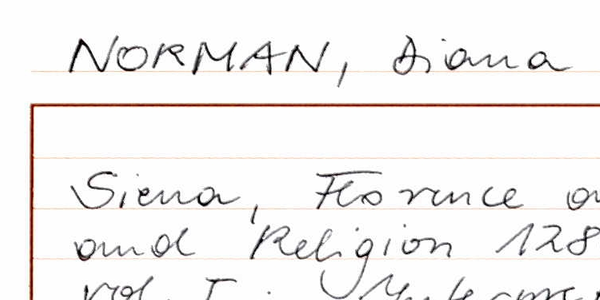 NORMAN, Diana
Siena, Florence
and Religion 128
vol. I: